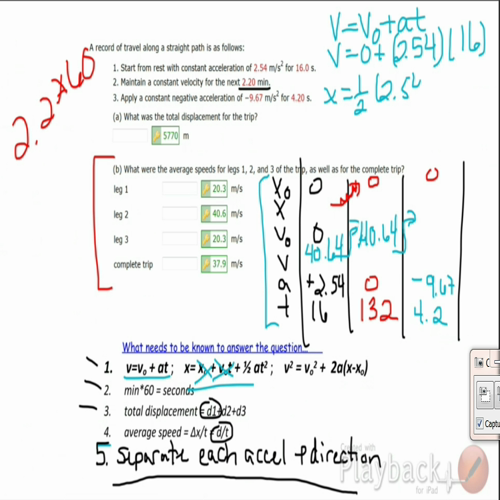 A record of travel along a straight path is as follows:
1. Start from rest with constant acceleration of 2.54 m/s² for 16.0 s.
2. Maintain a constant velocity for the next 2.20 min.
3. Apply a constant negative acceleration of −9.67 m/s² for 4.20 s.
(a) What was the total displacement for the trip?
5770 m
(b) What were the average speeds for legs 1, 2, and 3 of the trip, as well as for the complete trip?
leg 1 20.3 m/s
leg 2 40.6 m/s
leg 3 20.3 m/s
complete trip 37.9 m/s
2.2*60
V=V₀+at
V=0+(2.54)(16)
x=½(2.54
X₀ 0 0 0
X
V₀ 0 40.64
V 40.64
a +2.54 0 -9.67
t 16 132 4.2
What needs to be known to answer the question...
1. v=v₀ + at ; x= x₀ + v₀t + ½ at² ; v² = v₀² + 2a(x-x₀)
2. min*60 = seconds
3. total displacement = d1+d2+d3
4. average speed = Δx/t = d/t
5. Separate each accel + direction
Created with
Playback
for iPad
C...
Captu